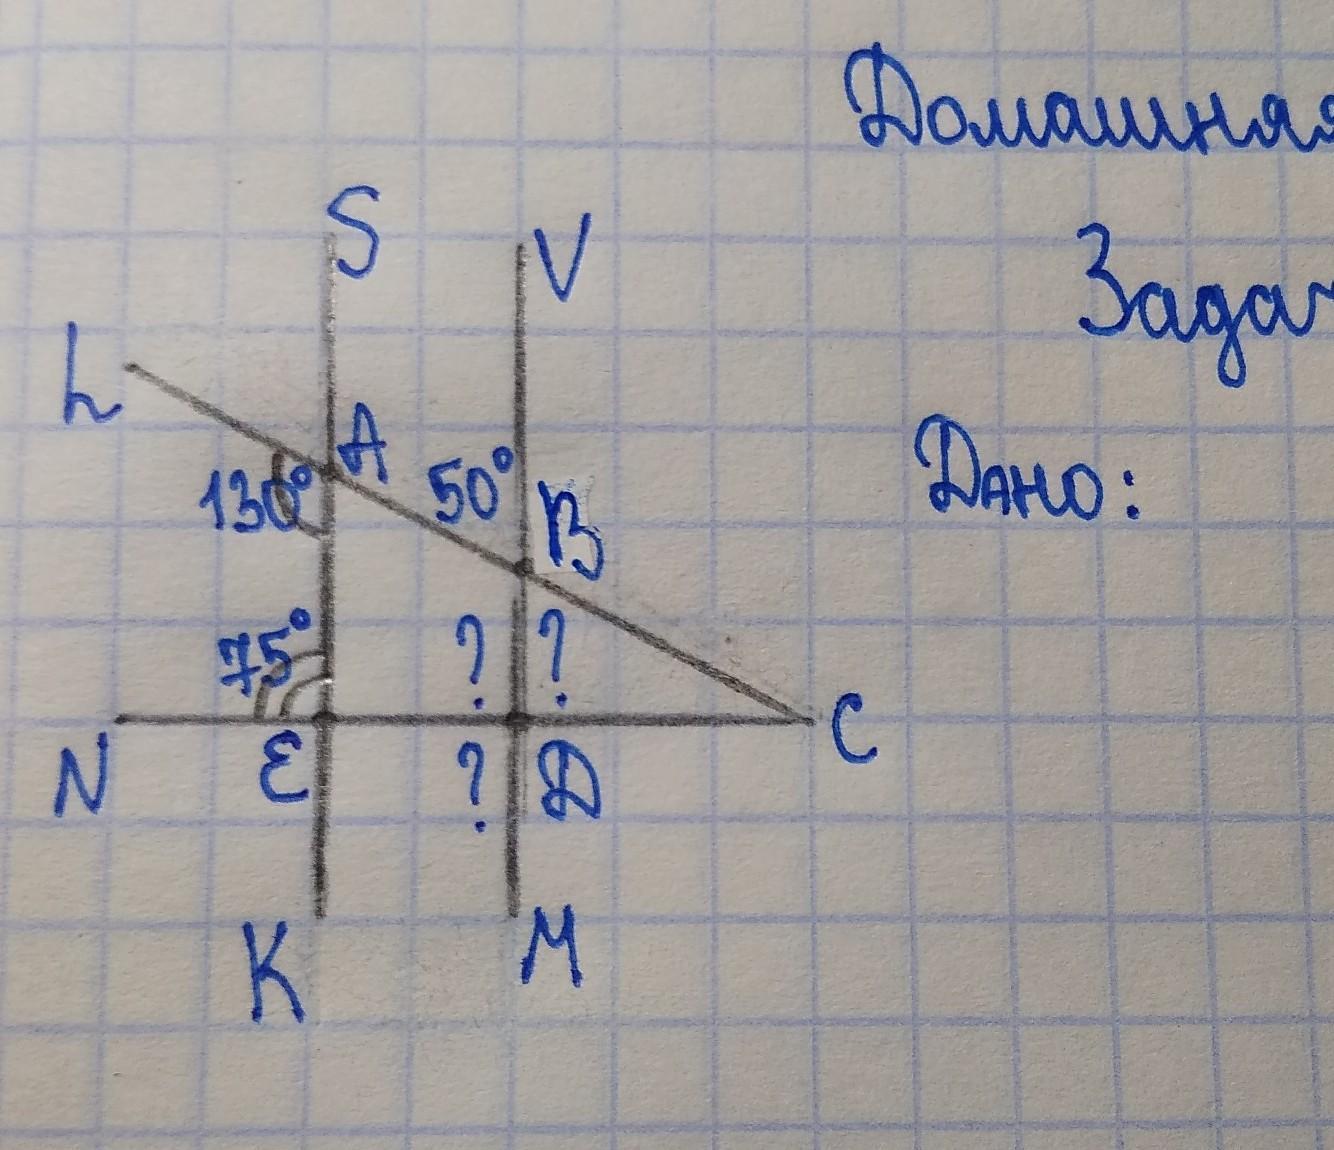 Домашняя
S
V
Зада
L
A
130°
50°
B
Дано:
75°
? ?
N
E
? D
C
K
M